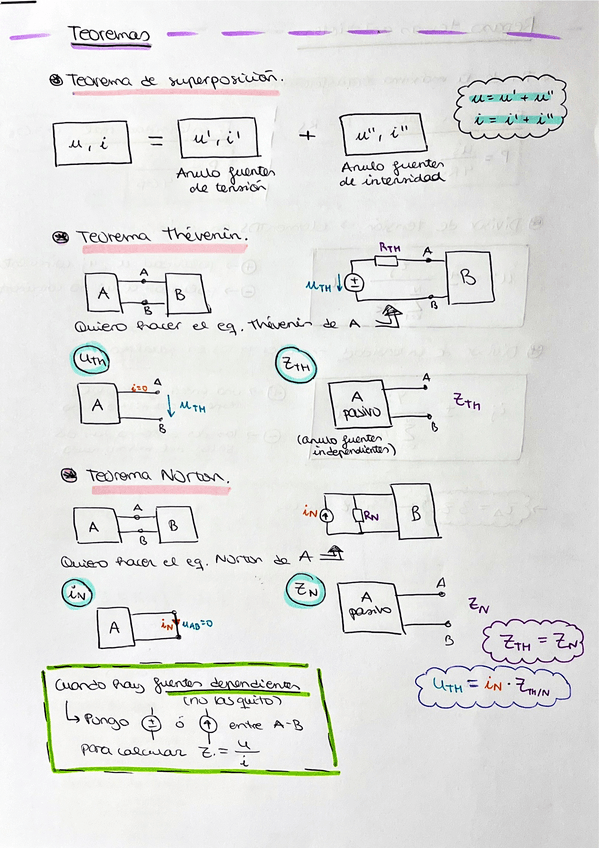 Teoremas
Teorema de superposición.
u = u' + u"
i = i' + i"
u, i = u', i' + u", i"
Anulo fuentes de tensión
Anulo fuentes de intensidad
Teorema Thévenin.
A A B B
uTH ± RTH A B B
Quiero hacer el eq. Thévenin de A
uTh
ZTH
A i=0 A uTH B
A pasivo A ZTH B
(anulo fuentes independientes)
Teorema Norton.
A A B B
iN RN B
Quiero hacer el eq. Norton de A
iN
ZN
A iN uAB=0
A pasivo A ZN B
ZTH = ZN
uTH = iN · ZTH/N
Cuando hay fuentes dependientes
(no las quito)
Pongo ± ó entre A-B
para calcular Z = u/i